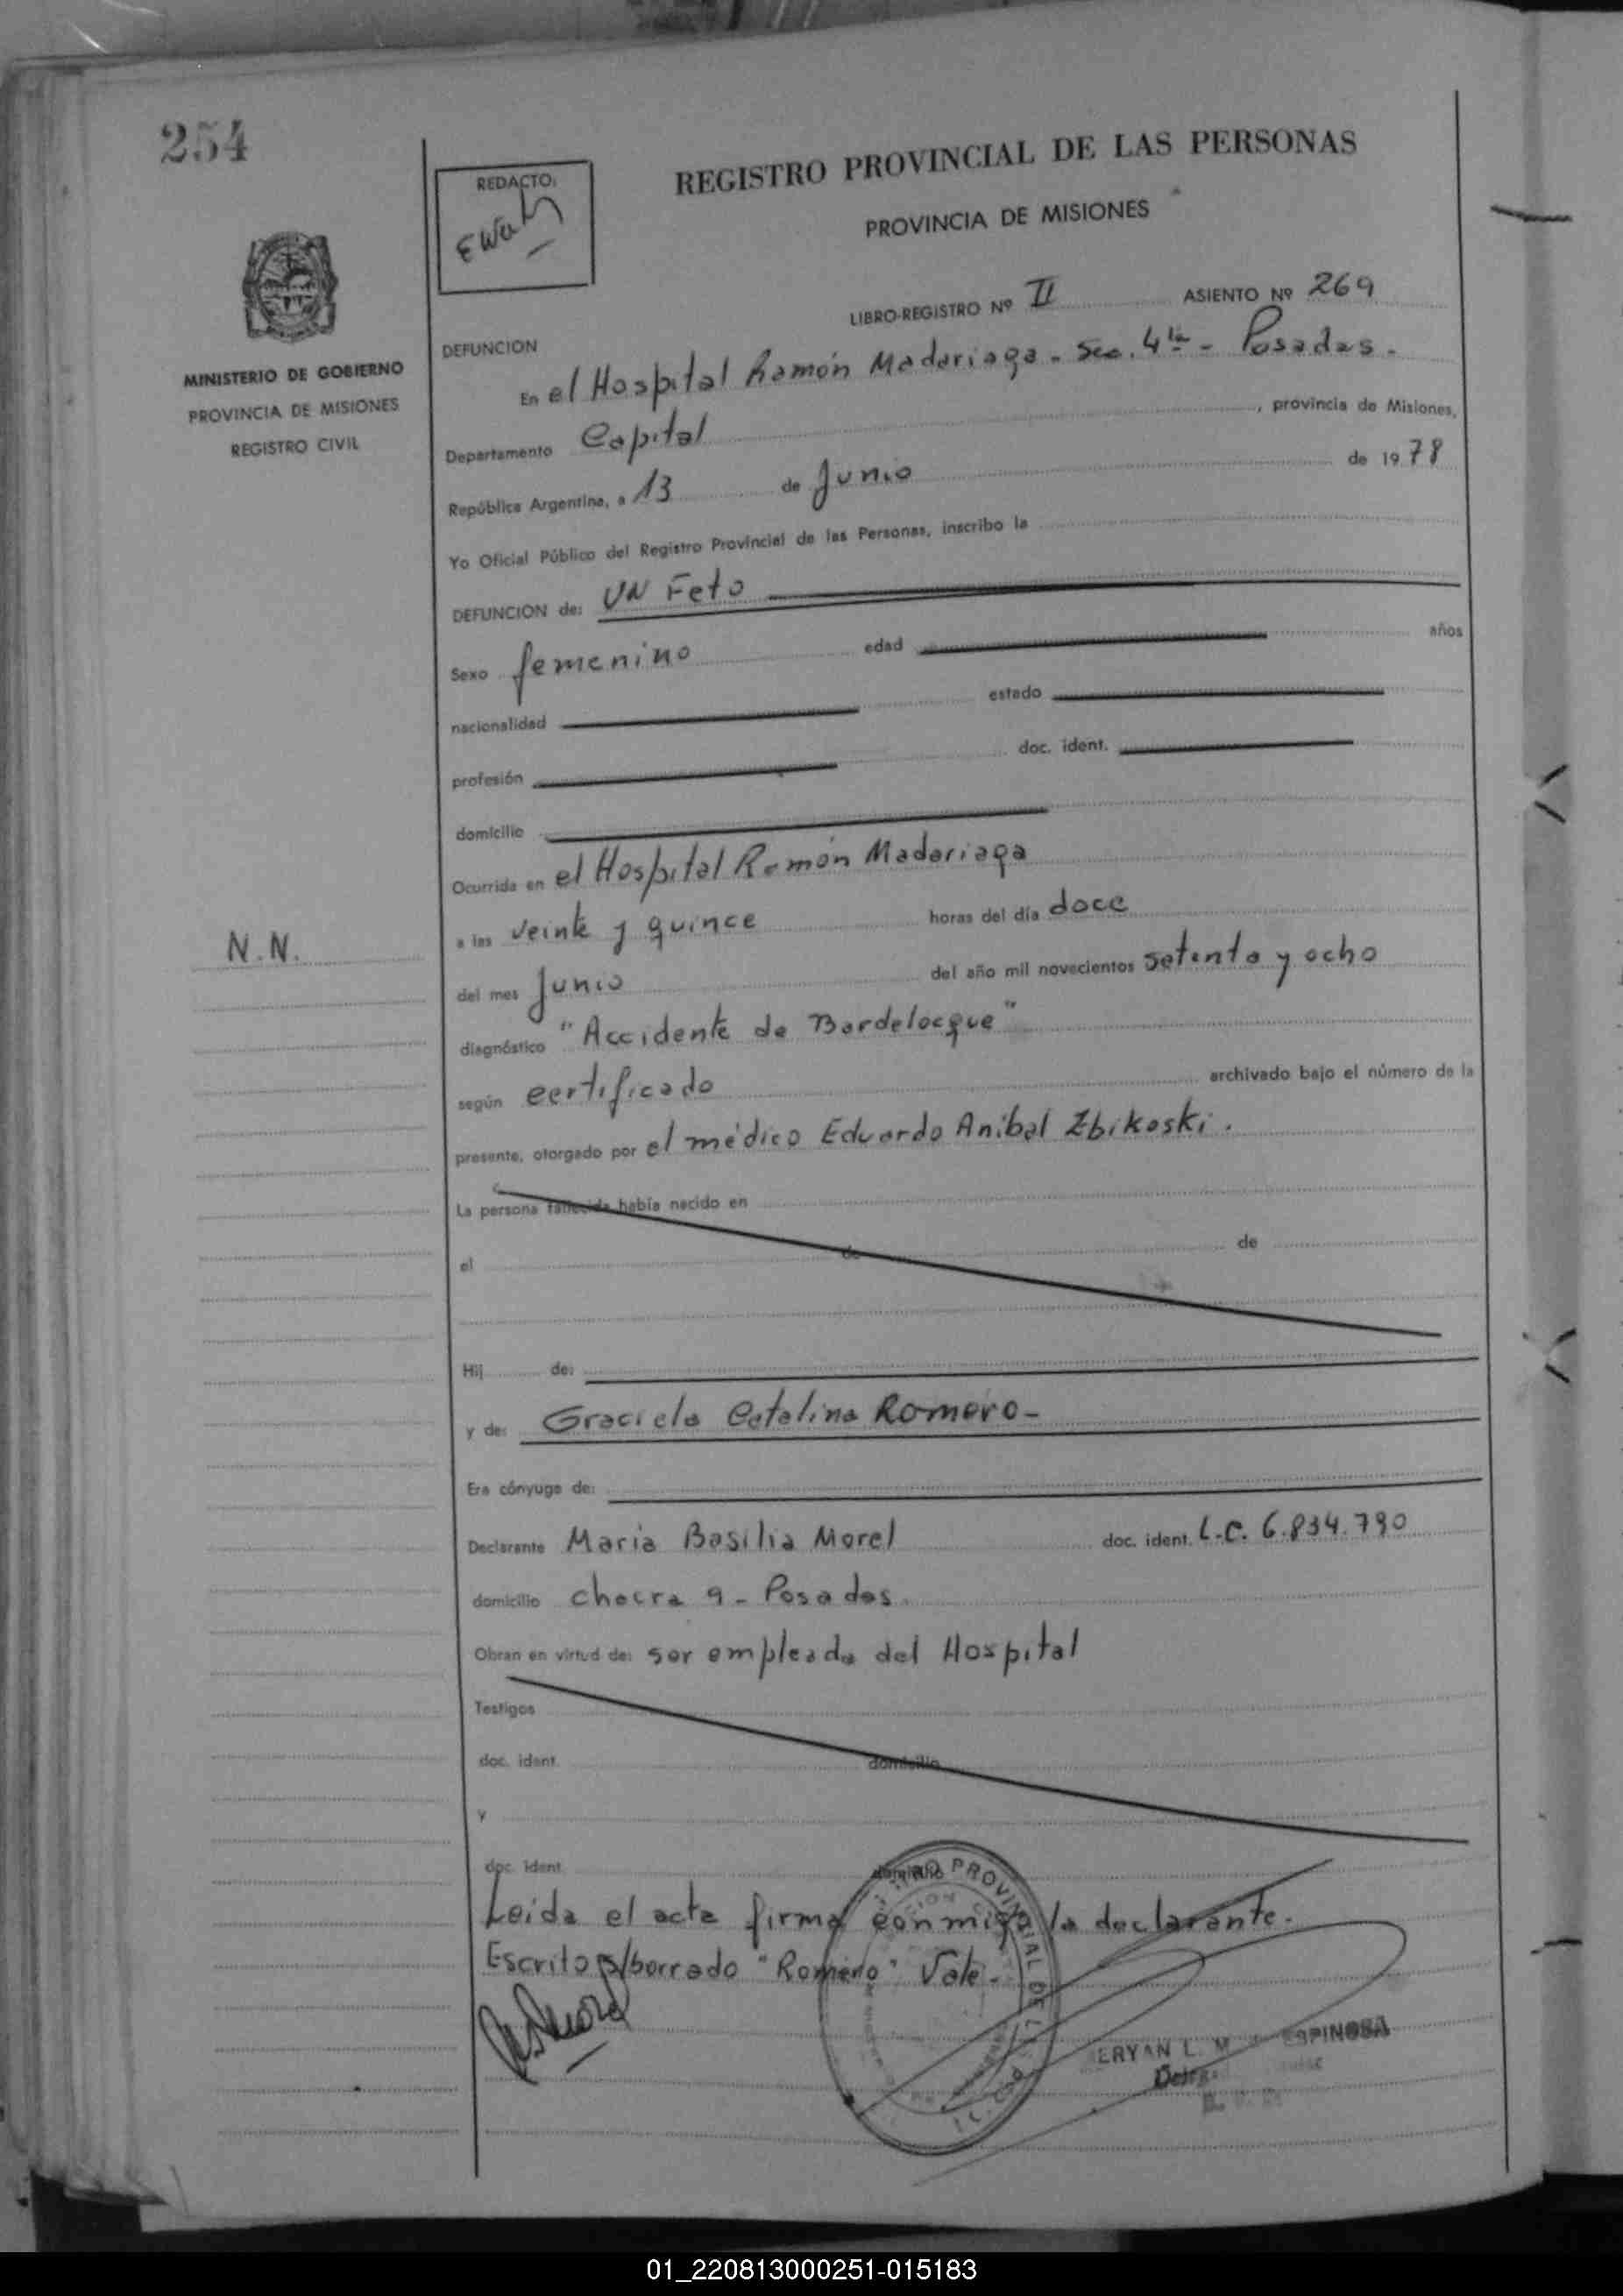 254
REDACTO:
REGISTRO PROVINCIAL DE LAS PERSONAS
PROVINCIA DE MISIONES
LIBRO-REGISTRO Nº II ASIENTO Nº 269
MINISTERIO DE GOBIERNO
PROVINCIA DE MISIONES
REGISTRO CIVIL
DEFUNCION
En el Hospital Ramón Madariaga - Sec. 4ta - Posadas.
Departamento Capital, provincia de Misiones,
República Argentina, a 13 de Junio de 1978
Yo Oficial Público del Registro Provincial de las Personas, inscribo la
DEFUNCION de: UN Feto
Sexo femenino edad años
nacionalidad estado
profesión doc. ident.
domicilio
Ocurrida en el Hospital Ramón Madariaga
N.N.
a las veinte y quince horas del día doce
del mes Junio del año mil novecientos setenta y ocho
diagnóstico "Accidente de Bardelocque"
según certificado archivado bajo el número de la
presente, otorgado por el médico Eduardo Anibal Zbikoski.
La persona fallecida había nacido en
el de de
Hij de:
y de: Graciela Catalina Romero-
Era cónyuge de:
Declarante Maria Basilia Morel doc. ident. L.C. 6.834.790
domicilio chacra 9 - Posadas.
Obran en virtud de: ser empleada del Hospital
Testigos
doc. ident. domicilio
y
doc. ident. domicilio
Leida el acta firma conmigo la declarante.
Escrito s/borrado "Romero" Vale.
ERYAN L. M ESPINOSA
01_220813000251-015183